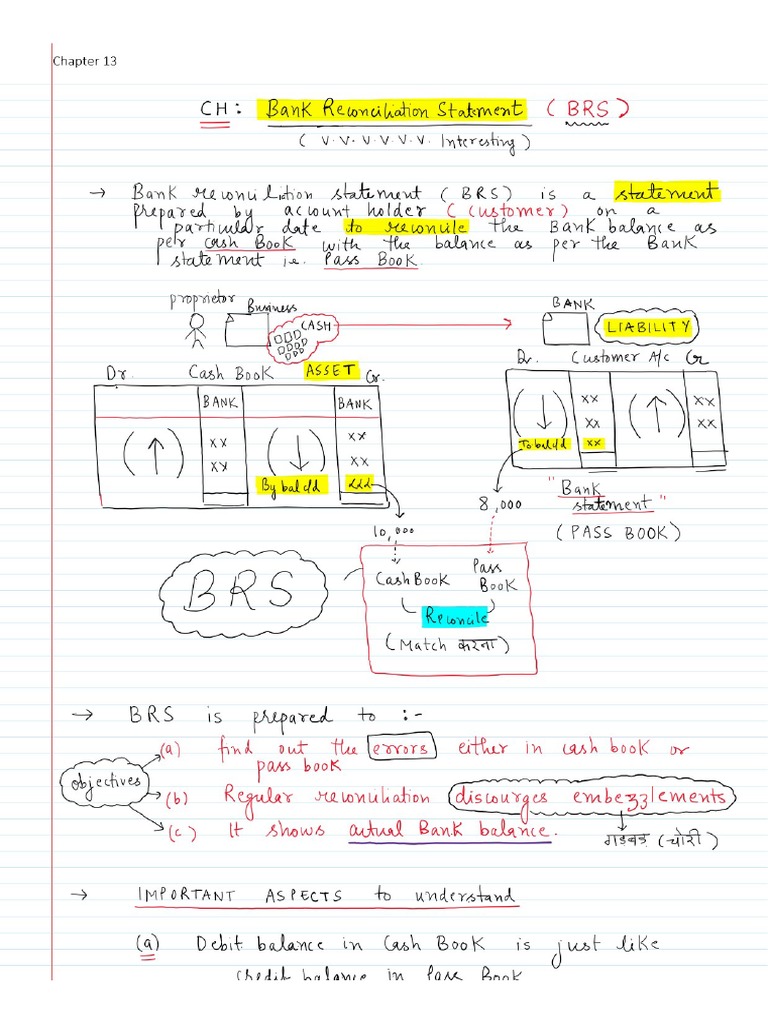 Chapter 13
CH: Bank Reconciliation Statement (BRS)
( V. V. V. V. V. V. Interesting )
→ Bank reconcilition statement ( BRS ) is a statement
prepared by account holder ( customer ) on a
particular date to reconcile the Bank balance as
per cash Book with the balance as per the Bank
statement ie. Pass Book.
proprietor Business CASH BANK LIABILITY
Dr. Cash Book ASSET Cr.
Dr. Customer A/c Cr
BANK BANK
(↑) xx (↓) xx
xx xx
By bal c/d
(↓) xx (↑) xx
xx xx
To bal c/d xx
10,000 8,000
" Bank
statement "
(PASS BOOK)
BRS
Cash Book Pass
Book
Reconcile
(Match करना)
→ BRS is prepared to :-
objectives
(a) find out the errors either in cash book or
pass book
(b) Regular reconciliation discourges embezzlements
गडबड (चोरी)
(c) It shows actual Bank balance.
→ IMPORTANT ASPECTS to understand
(a) Debit balance in Cash Book is just like
credit balance in Pass Book